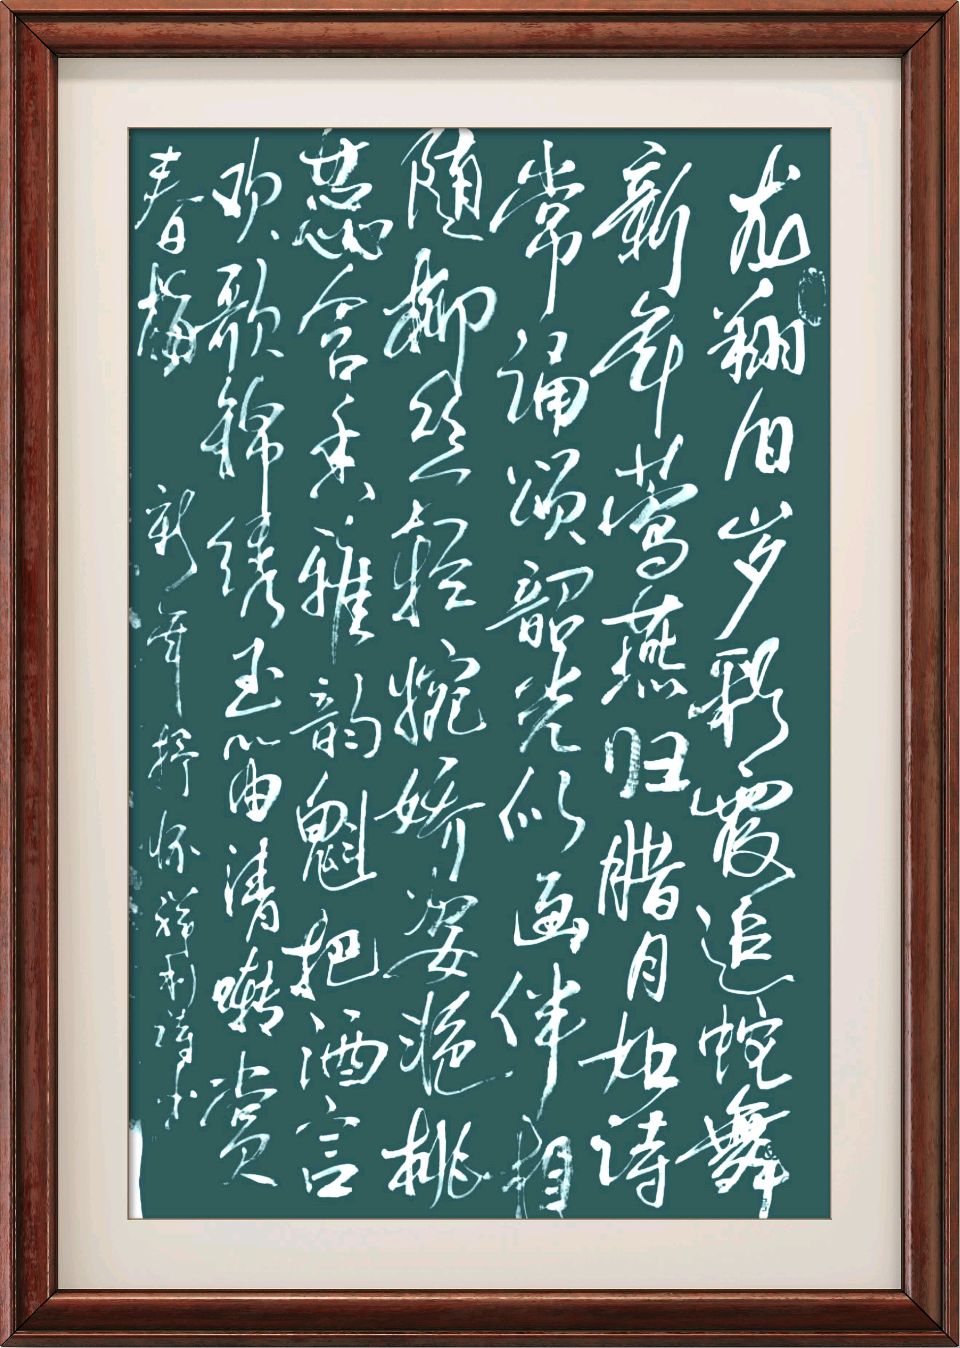 龙翔旧岁彩霞追蛇舞
新年莺燕归腊月如诗
常诵颂韶光似画伴相
随柳丝轻婉娇姿艳桃
蕊含香雅韵魁把酒言
欢歌锦绣玉笛清啭赏
春梅
新年抒怀祥利诗书